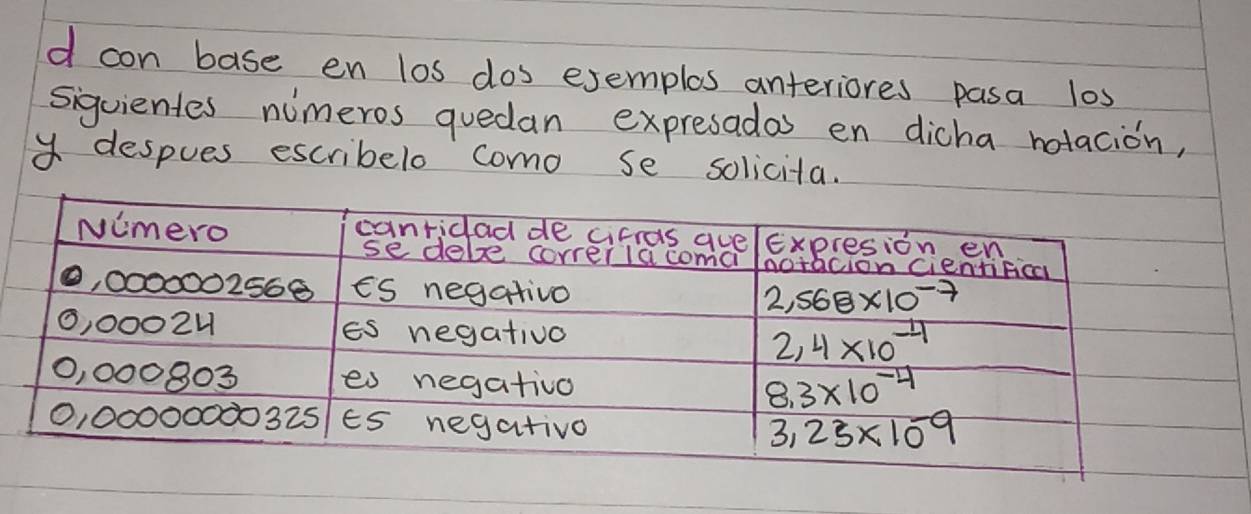 d con base en los dos esemplos anteriores pasa los
siguientes números quedan expresados en dicha notación,
y despues escribelo como se solicita.
Número cantidad de cifras que Expresión en
se debe correr la coma notacion cientifica
0,0000002568 Es negativo 2,568×10⁻⁷
0,00024 Es negativo 2,4×10⁻⁴
0,000803 es negativo 8.3×10⁻⁴
0,00000000325 Es negativo 3,23×10⁻⁹